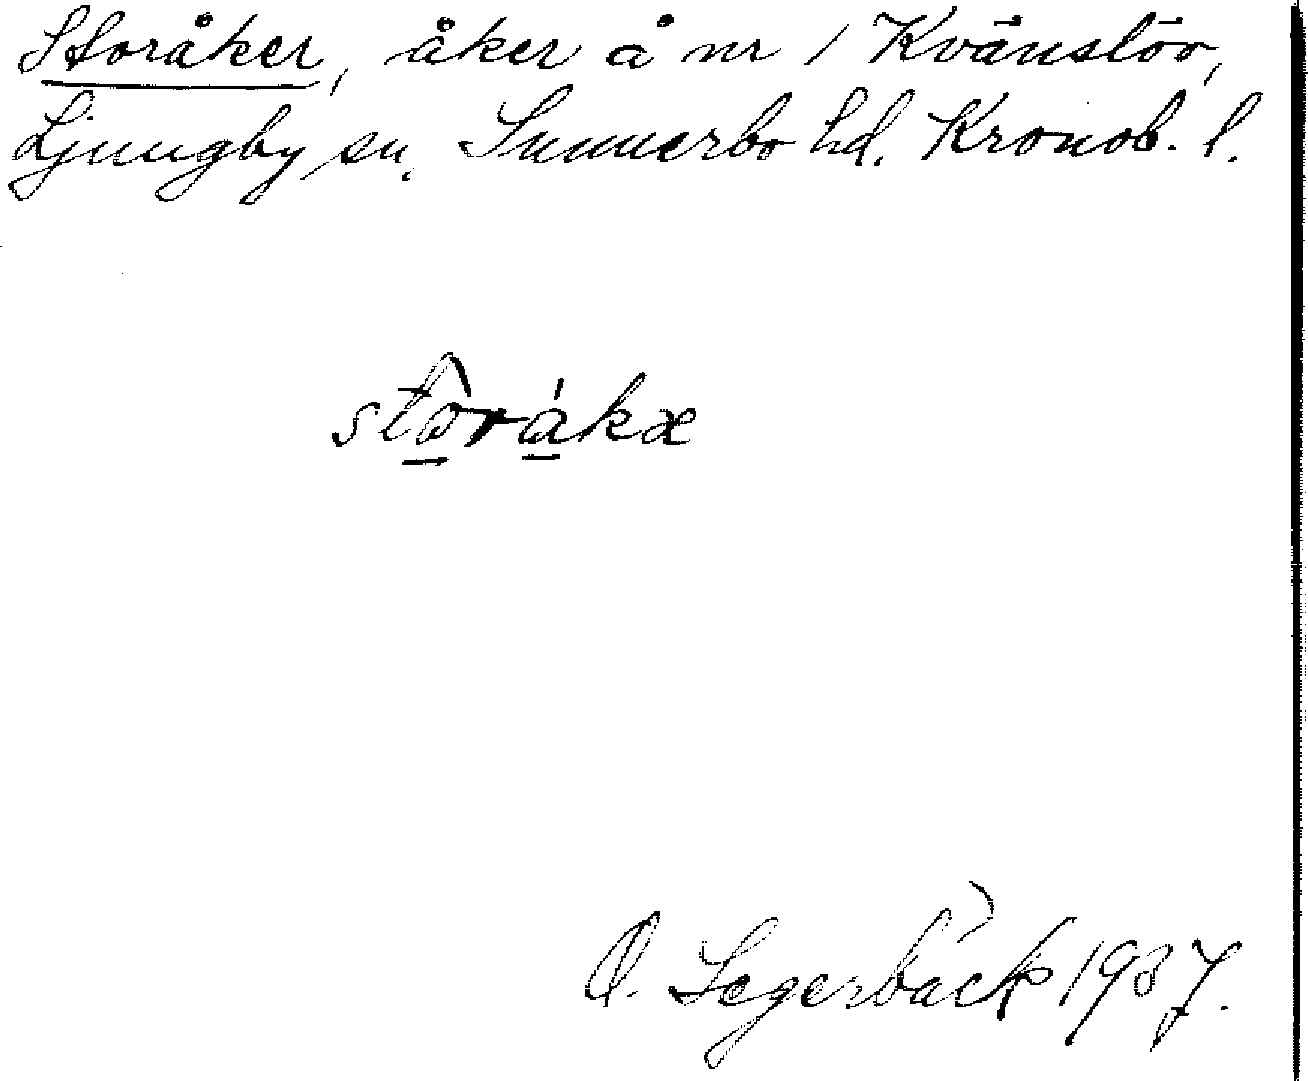 Storåker, åker å nr 1 Kvänslöv,
Ljungby sn. Sunnerbo hd. Kronob. l.
storåkæ
O. Segerbäck 1937.